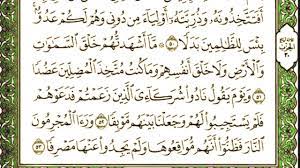 أَفَتَتَّخِذُونَهُۥ وَذُرِّيَّتَهُۥٓ أَوْلِيَآءَ مِن دُونِى وَهُمْ لَكُمْ عَدُوٌّۢ
بِئْسَ لِلظَّٰلِمِينَ بَدَلًا ٥٠ مَّآ أَشْهَدتُّهُمْ خَلْقَ ٱلسَّمَٰوَٰتِ
وَٱلْأَرْضِ وَلَا خَلْقَ أَنفُسِهِمْ وَمَا كُنتُ مُتَّخِذَ ٱلْمُضِلِّينَ عَضُدًا
٥١ وَيَوْمَ يَقُولُ نَادُوا۟ شُرَكَآءِىَ ٱلَّذِينَ زَعَمْتُمْ فَدَعَوْهُمْ
فَلَمْ يَسْتَجِيبُوا۟ لَهُمْ وَجَعَلْنَا بَيْنَهُم مَّوْبِقًا ٥٢ وَرَءَا ٱلْمُجْرِمُونَ
ٱلنَّارَ فَظَنُّوٓا۟ أَنَّهُم مُّوَاقِعُوهَا وَلَمْ يَجِدُوا۟ عَنْهَا مَصْرِفًا ٥٣